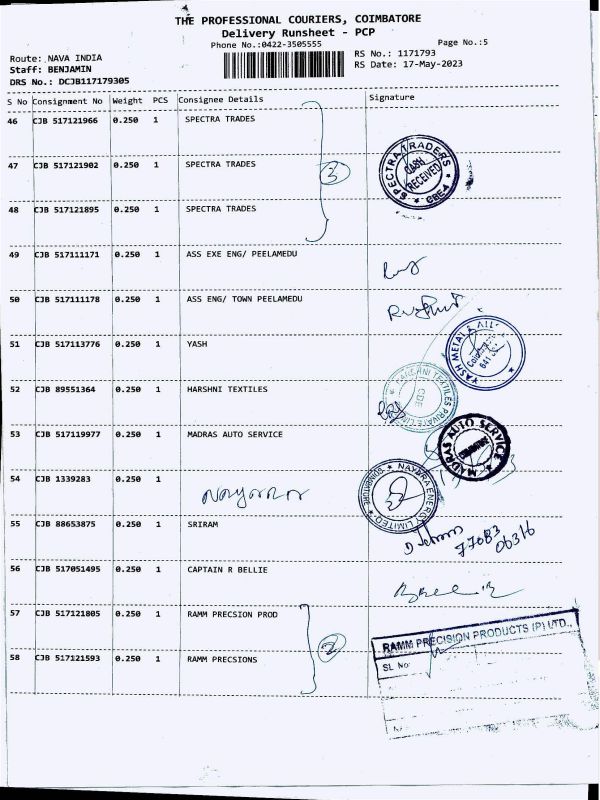 THE PROFESSIONAL COURIERS, COIMBATORE
Delivery Runsheet - PCP
Phone No.:0422-3505555
Page No.:5
Route: NAVA INDIA
RS No.: 1171793
Staff: BENJAMIN
RS Date: 17-May-2023
DRS No.: DCJB117179305
S No Consignment No Weight PCS Consignee Details Signature
46 CJB 517121966 0.250 1 SPECTRA TRADES
47 CJB 517121902 0.250 1 SPECTRA TRADES
3
SPECTRA TRADERS CASH RECEIVED CBE-4
48 CJB 517121895 0.250 1 SPECTRA TRADES
49 CJB 517111171 0.250 1 ASS EXE ENG/ PEELAMEDU
50 CJB 517111178 0.250 1 ASS ENG/ TOWN PEELAMEDU
51 CJB 517113776 0.250 1 YASH
YASH METAL & ALL
52 CJB 89551364 0.250 1 HARSHNI TEXTILES
HARSHNI TEXTILES PRIVATE LIMITED
53 CJB 517119977 0.250 1 MADRAS AUTO SERVICE
MADRAS AUTO SERVICE COIMBATORE
54 CJB 1339283 0.250 1 Nayara
NAYARA ENERGY LIMITED COIMBATORE
55 CJB 88653875 0.250 1 SRIRAM
77083
06316
56 CJB 517051495 0.250 1 CAPTAIN R BELLIE
57 CJB 517121805 0.250 1 RAMM PRECSION PROD
2
RAMM PRECISION PRODUCTS (P) LTD.,
SL No
58 CJB 517121593 0.250 1 RAMM PRECSIONS